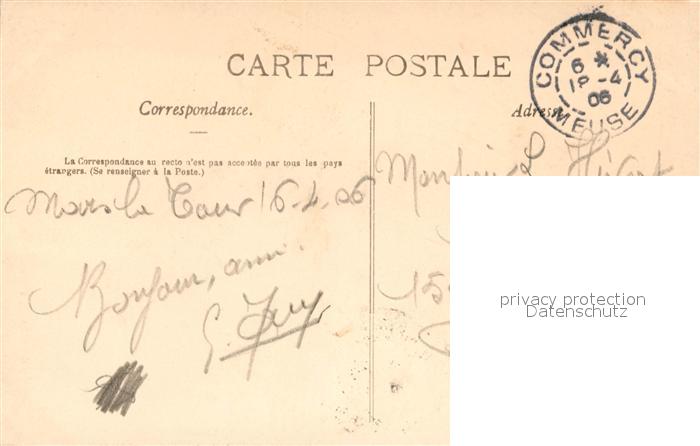 CARTE POSTALE
COMMERCY
6 *
18 -4
06
MEUSE
Correspondance.
Adresse
La Correspondance au recto n'est pas acceptée par tous les pays
étrangers. (Se renseigner à la Poste.)
Mars la Tour 16-4-06
Monsieur
Bonjour, ami.
G.
15
privacy protection
Datenschutz